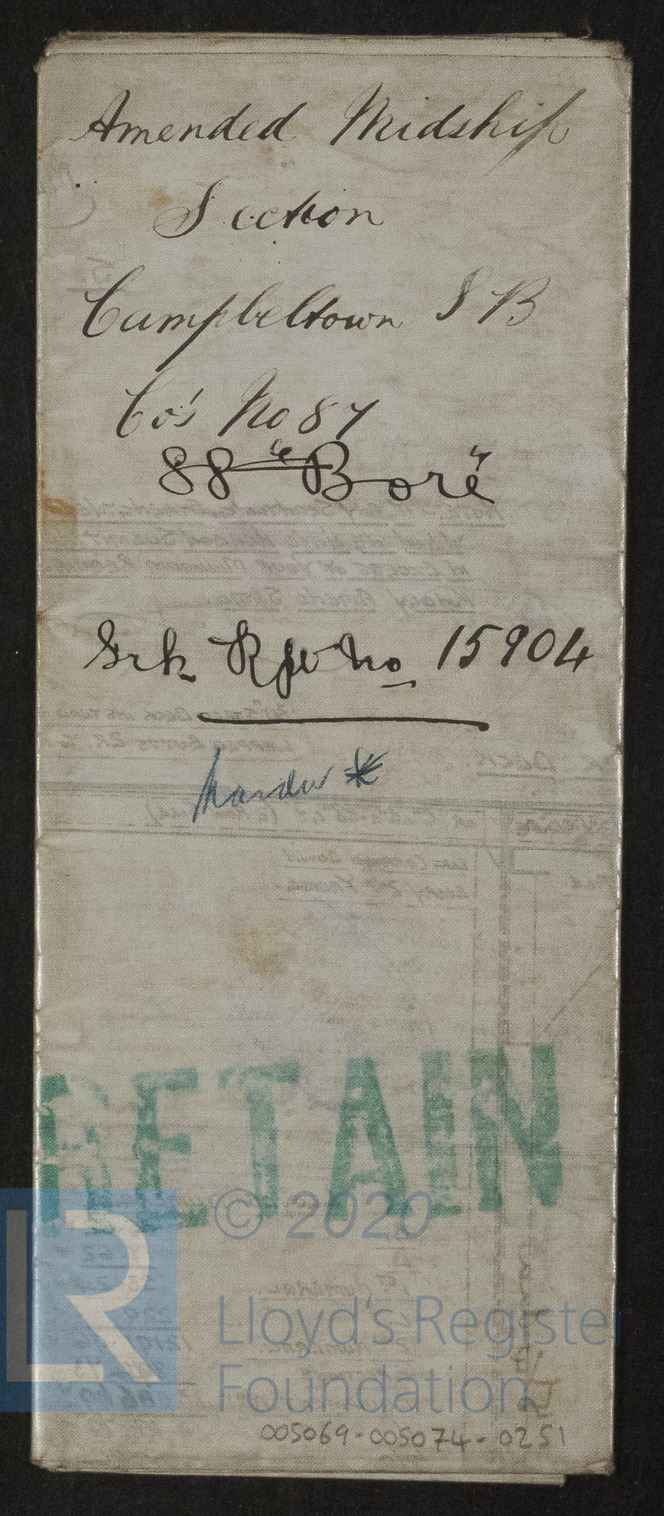 Amended Midship
Section
Campbeltown SB
Co's No 87
88 "Boré"
Grk Rpt No 15904
RETAIN
LR
© 2020
Lloyd's Register
Foundation
005069-005074-0251